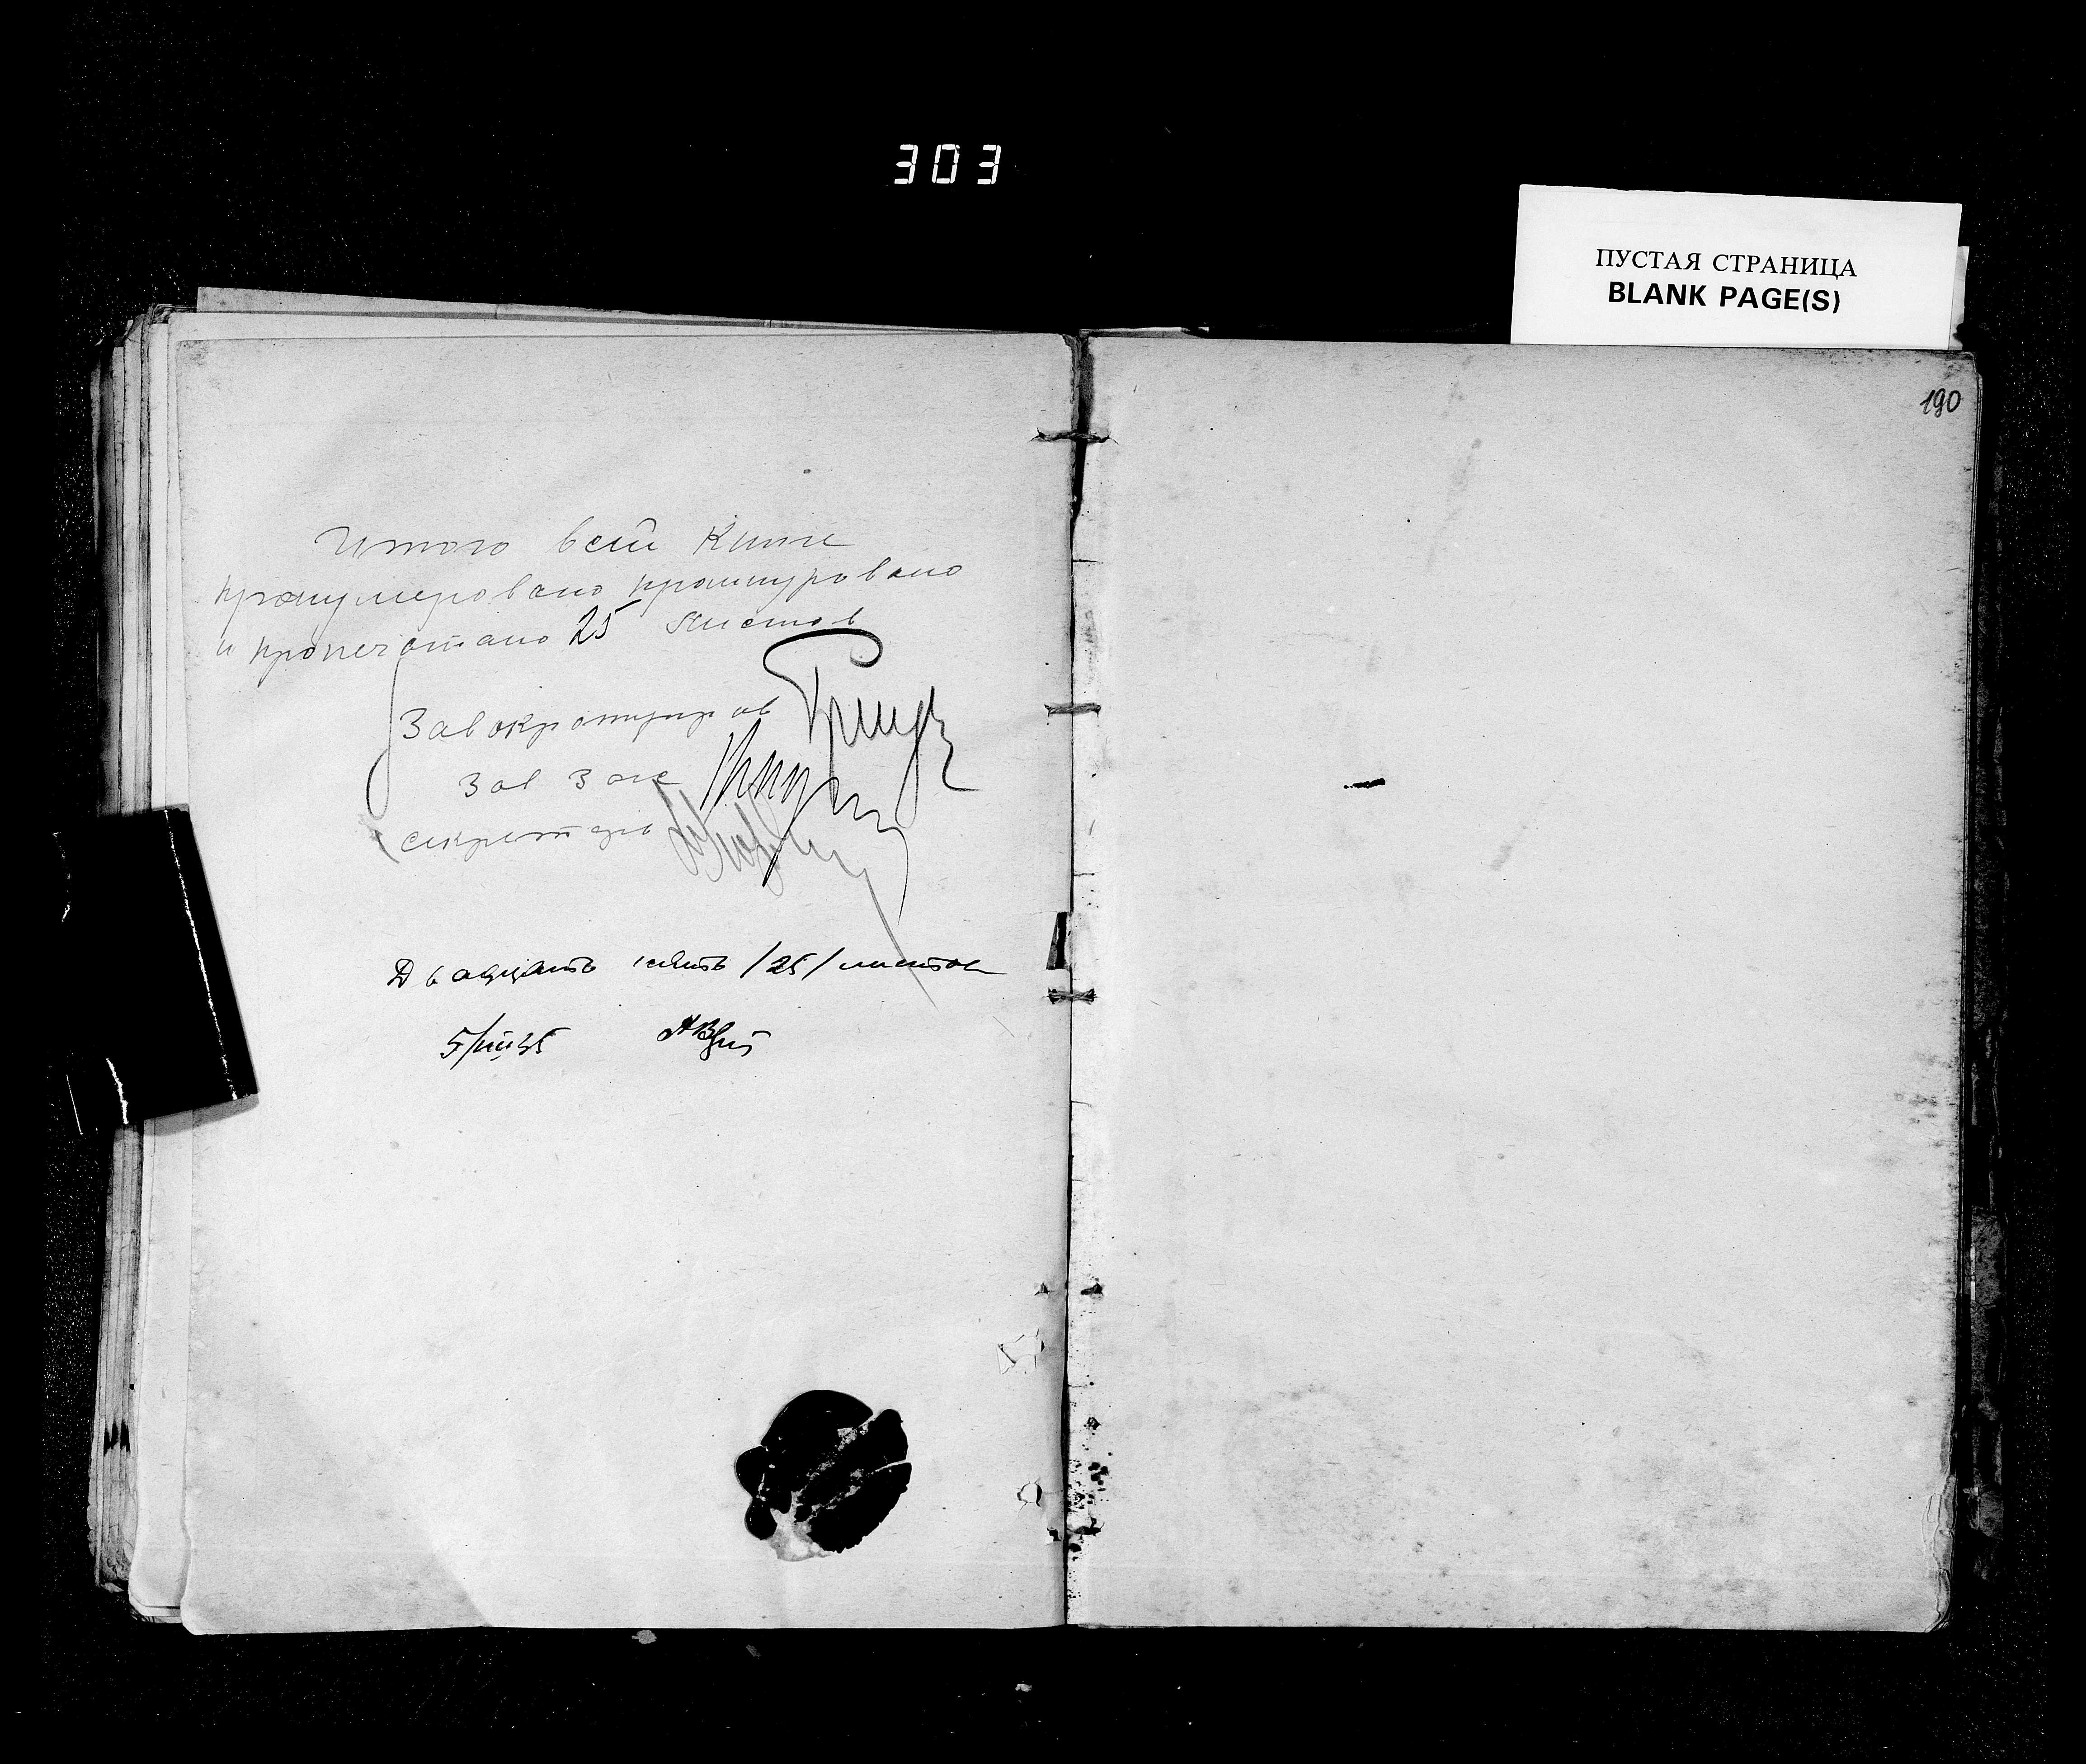 303
ПУСТАЯ СТРАНИЦА
BLANK PAGE(S)
190
Итого всей Книге
пронумеровано прошнуровано
и пропечатано 25 листов
Зав
Зав Загс
секретарь
Двадцать пять /25/ листов
5/VIII 35